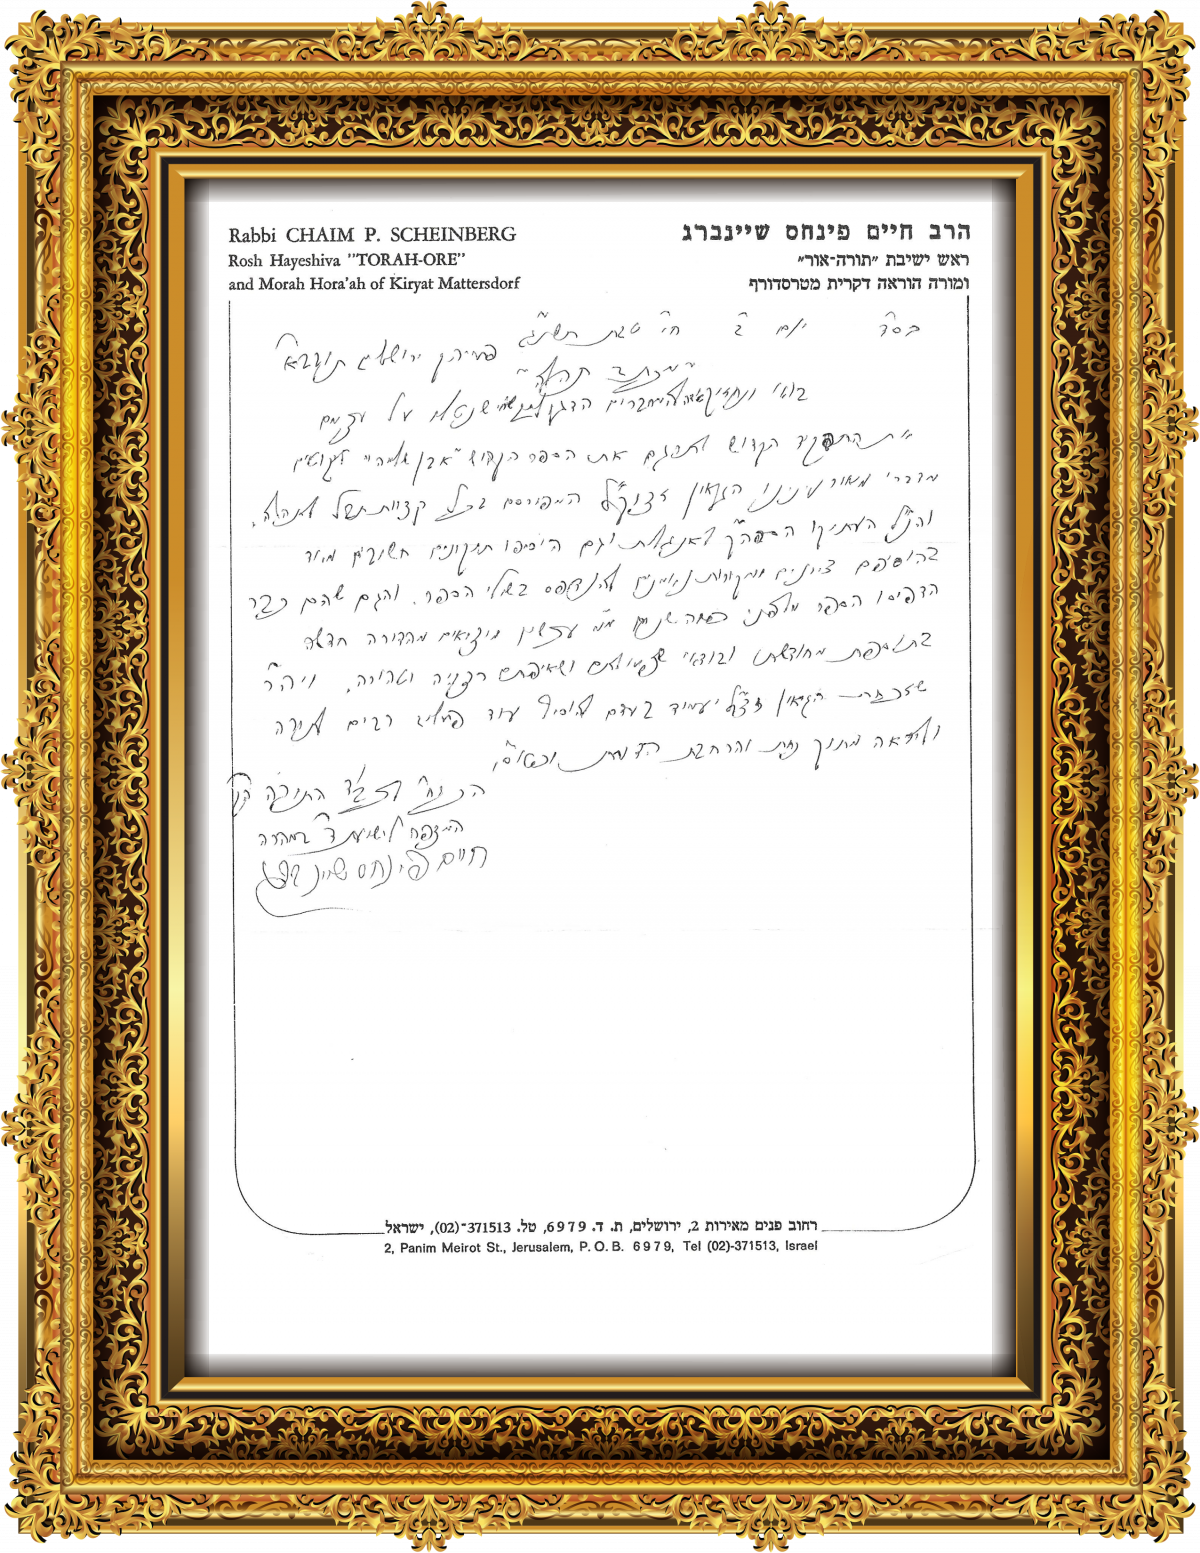 Rabbi CHAIM P. SCHEINBERG
Rosh Hayeshiva "TORAH-ORE"
and Morah Hora'ah of Kiryat Mattersdorf
הרב חיים פינחס שיינברג
ראש ישיבת "תורה-אור"
ומורה הוראה דקרית מטרסדורף
בס"ד יום ב' ח"י טבת תשנ"ג פעיה"ק ירושלים תובבא"
"מכתב תהלה"
שנטלו על עצמם
את התפקיד הקדוש לתרגם את הספר הקדוש "אבן שלמה" לקוטים
מדברי מאור עינינו הגאון זצוק"ל המפורסם בכל קצוות תבל לתהלה,
והנ"ל העתיקו הספה"ק לאנגלית וגם הוסיפו תיקונים חשובים מאוד
בהוסיפם ציונים ומקורות נאמנים להנדפס בשולי הספר. והגם שהם כבר
הדפיסו הספר מלפני כמה שנים מ"מ עכשיו מוציאים מהדורה חדשה
בתוספת מחודשת ובודאי ושאיפתם רצויה וטהורה. ויה"ר
שזכות הגאון זצ"ל יעמוד בעדם להוסיף עוד פעלים רבים לתורה
ולידאה מתוך נחת והרחבת הדעת וכט"ס,
הכו"ח לכבוד התורה
המצפה לישועת ד' במהרה
חיים פינחס שיינברג
רחוב פנים מאירות 2, ירושלים, ת. ד. 6979, טל. 371513-(02), ישראל
2, Panim Meirot St., Jerusalem, P.O.B. 6979, Tel (02)-371513, Israel